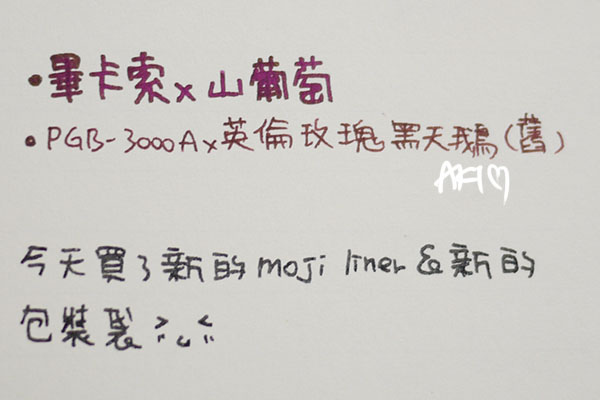 • 畢卡索 x 山葡萄
• PGB-3000A x 英倫玫瑰黑天鵝(舊)
今天買了新的 moji liner & 新的
包裝袋 >"ᴗ"<